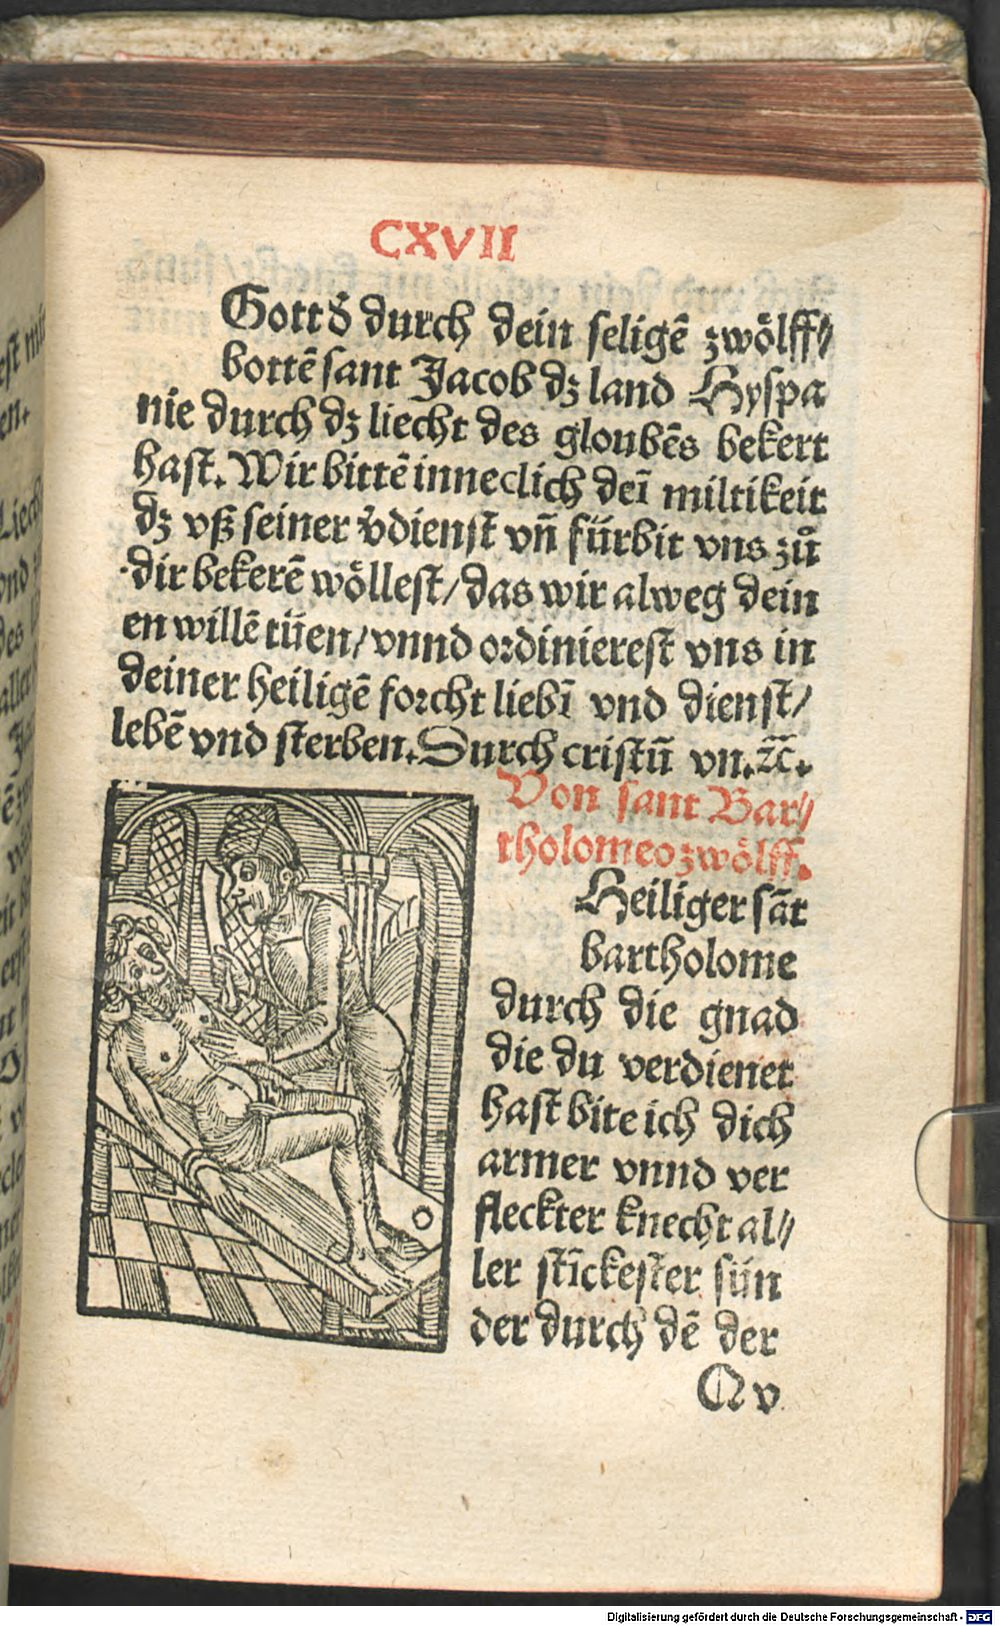 CXVII
Gott d̄ durch dein seligē zwoͤlff⸗
bottē sant Jacob dz land Hyspa
nie durch dz liecht des gloubēs bekert
hast. Wir bittē inneclich deī miltikeit
dz vß seiner v̄dienst vn̄ fürbit vns zuͦ
dir bekerē woͤllest / das wir alweg dein
en willē tüen / vnnd ordinierest vns in
deiner heiligē forcht liebī vnd dienst /
lebē vnd sterben. Durch cristū vn. ⁊c.
Von sant Bar⸗
tholomeo zwoͤlff.
Heiliger sāt
bartholome
durch die gnad
die du verdienet
hast bite ich dich
armer vnnd ver
fleckter knecht al⸗
ler stīckester sün
der durch dē der
Q v
Digitalisierung gefördert durch die Deutsche Forschungsgemeinschaft - DFG